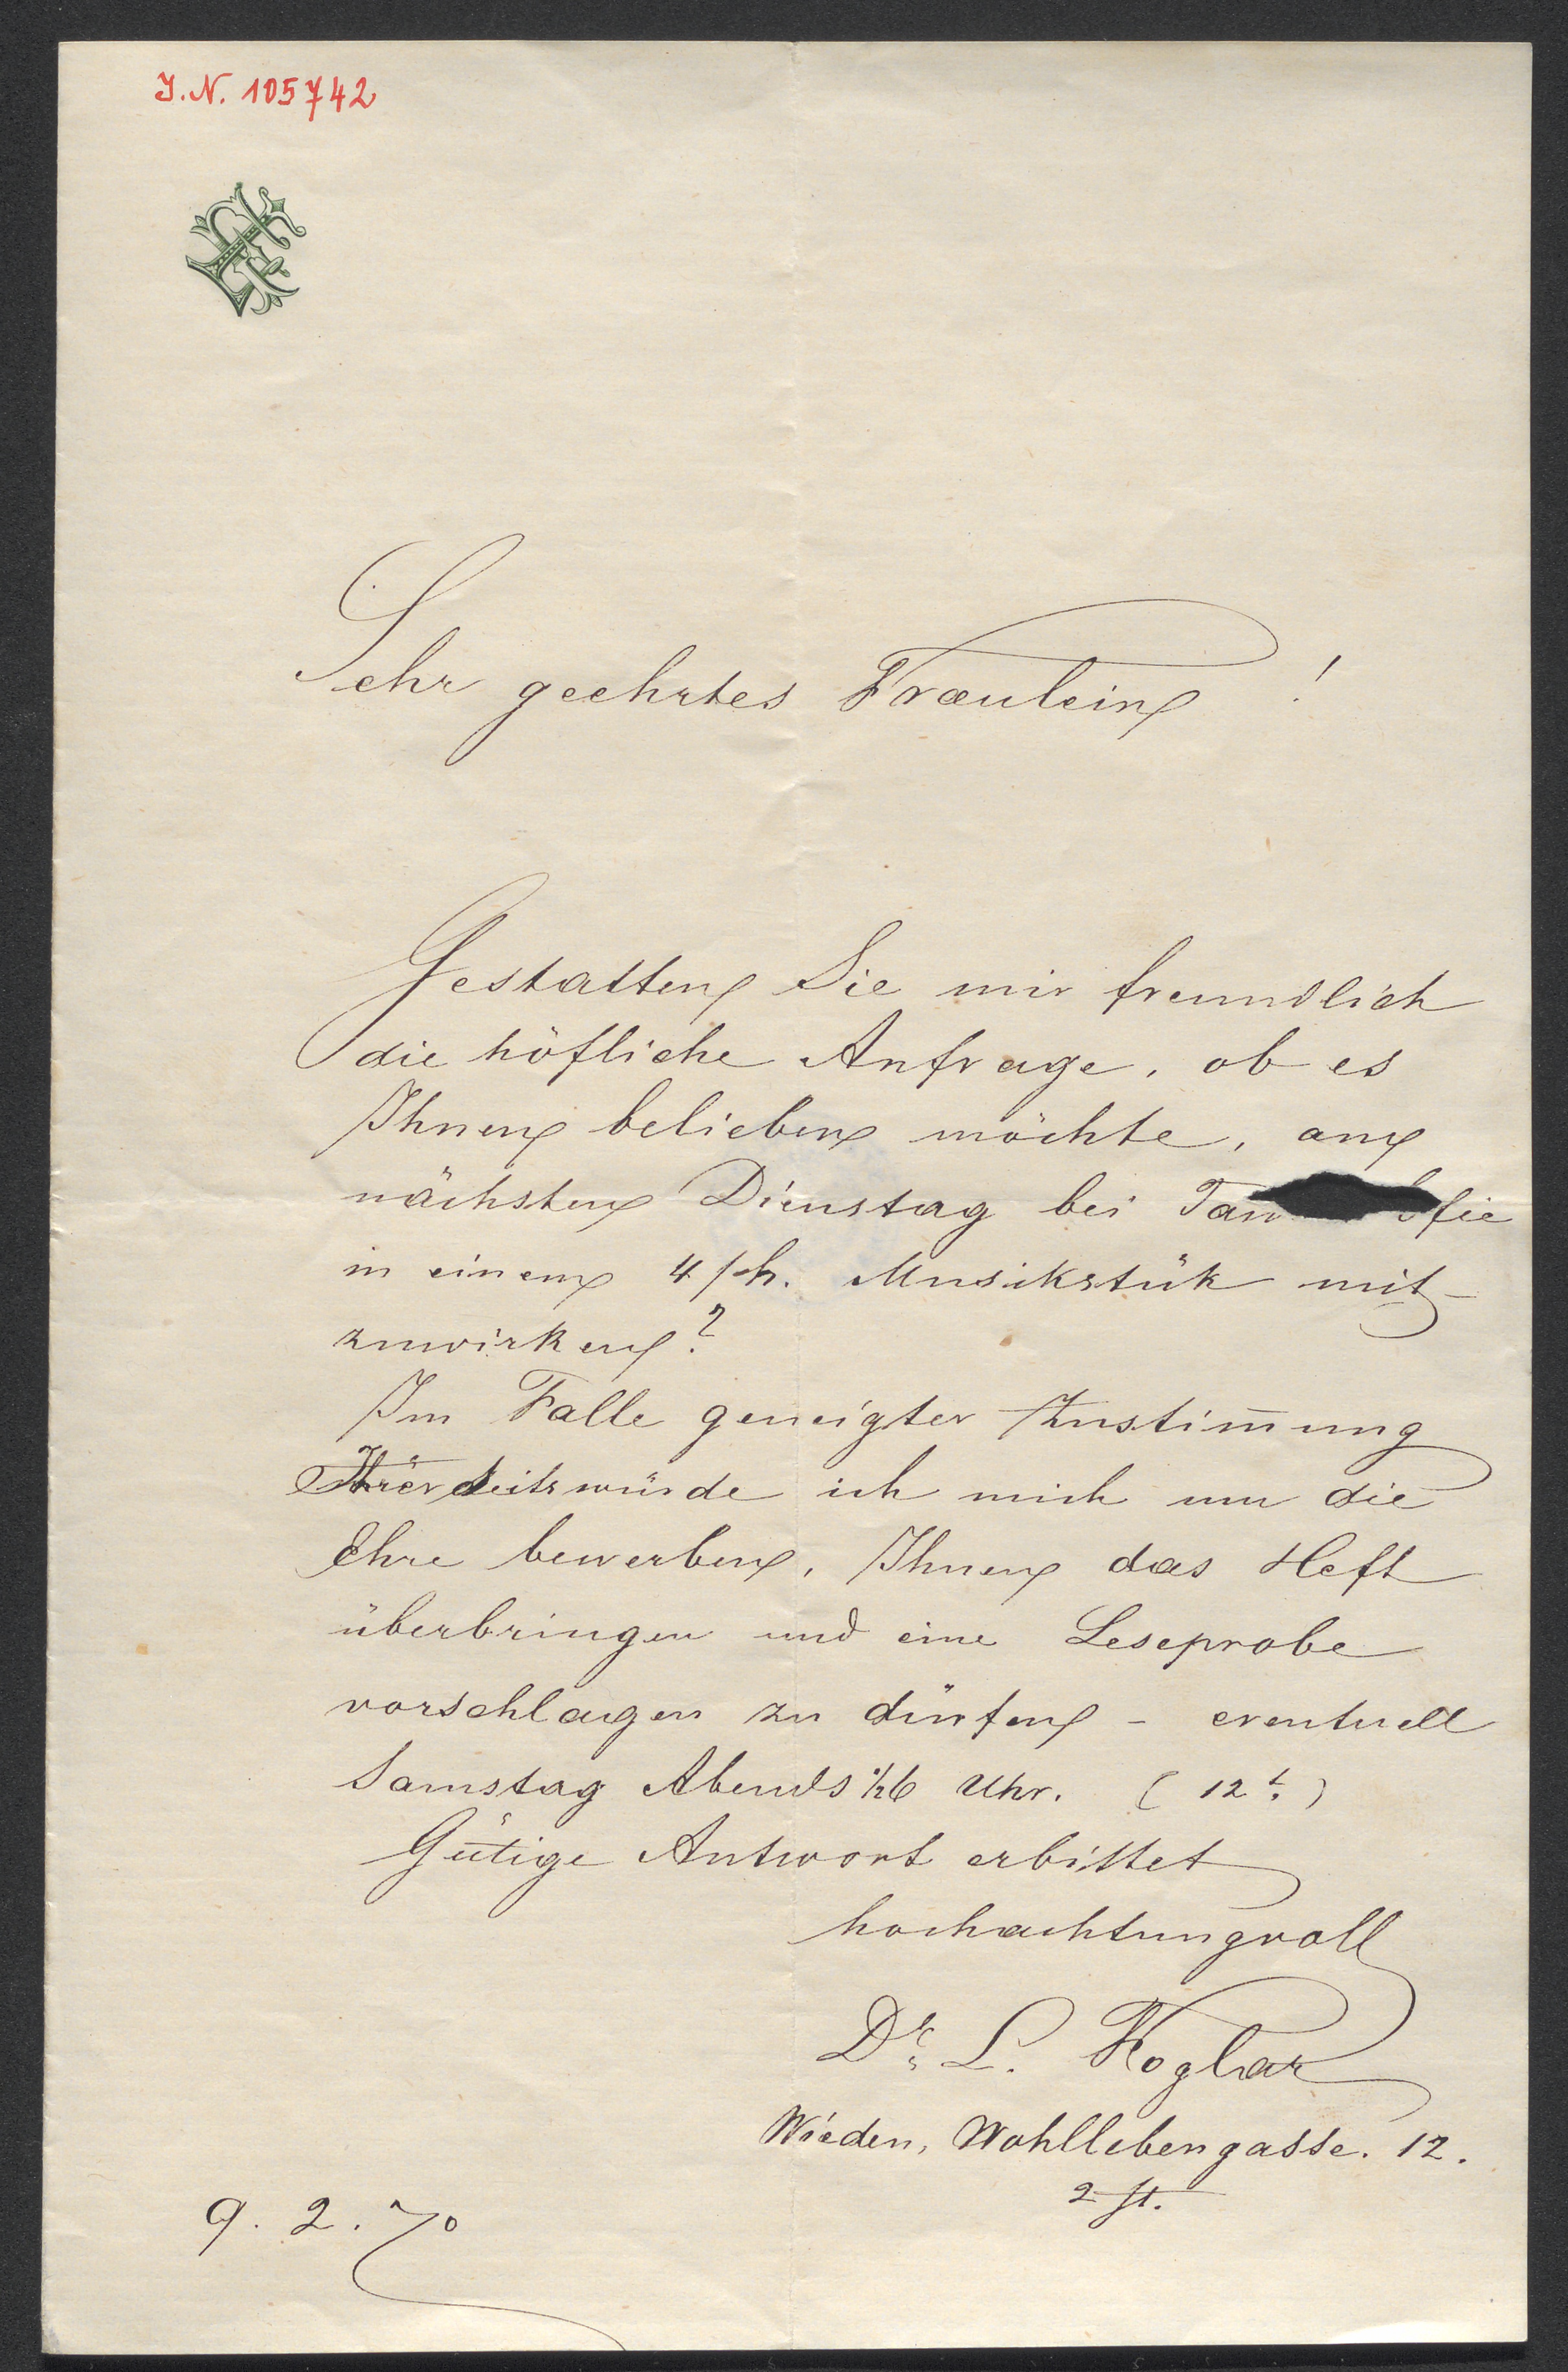 J.N. 105742
Sehr geehrtes Fräulein!
Gestatten Sie mir freundlich
die höfliche Anfrage, ob es
Ihnen belieben möchte, am
nächsten Dienstag bei
in einem 4/h. Musikstük mit-
zuwirken?
Im Falle geneigter Zustim̅ung
Ihrerseits würde ich mich um die
Ehre bewerben, Ihnen das Heft
überbringen und eine Leseprobe
vorschlagen zu dürfen – eventuell
Samstag Abends ½6 Uhr. (12t.)
Gütige Antwort erbittet
hochachtungvoll
Dr. L. Koglar
Wieden, Wohllebengasse. 12.
2 St.
9. 2. 70